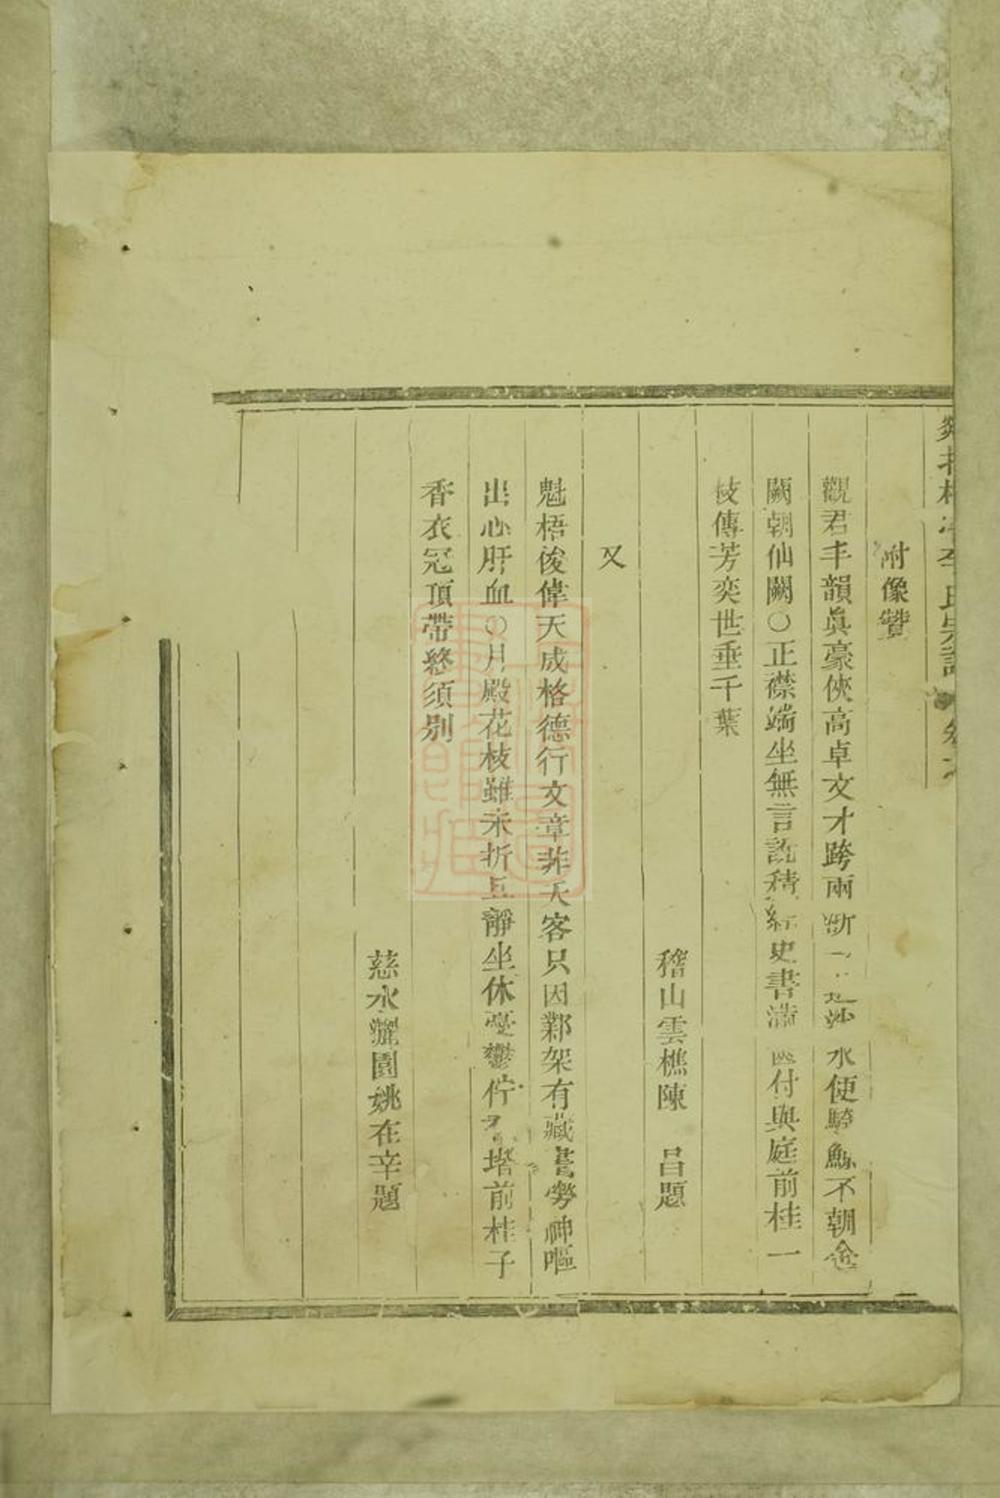 李氏宗譜
附像贊
觀君丰韻眞豪俠高卓文才跨兩浙沙水使騎鯨不朝金
闕朝仙闕○正襟端坐無言說積經史書滿付與庭前桂一
枝傳芳奕世垂千葉
稽山雲樵陳 昌題
又
魁梧俊偉天成格德行文章非夭客只因鄴架有藏書勞神嘔
出心肝血○月殿花枝雖未折且靜坐休憂鬱佇堦前桂子
香衣冠頂帶終須別
慈水灑園姚在辛題